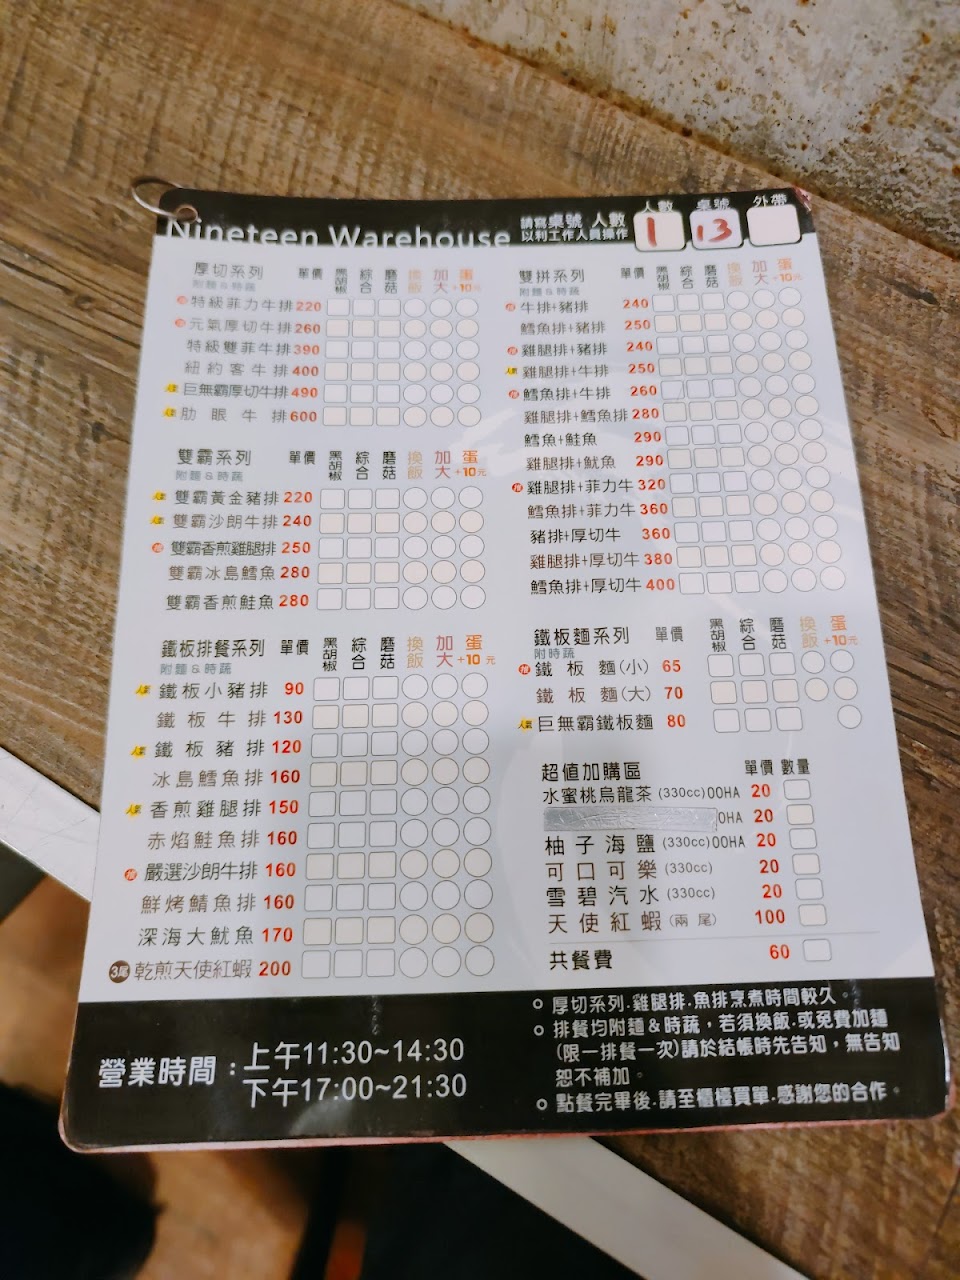 Nineteen Warehouse
請寫桌號 人數
以利工作人員操作
人數 桌號 外帶
1 13
厚切系列 單價 黑胡椒 綜合 磨菇 換飯 加大 蛋+10元
附麵&時蔬
推 特級菲力牛排 220
推 元氣厚切牛排 260
特級雙菲牛排 390
紐約客牛排 400
人氣 巨無霸厚切牛排 490
人氣 肋眼牛排 600
雙霸系列 單價 黑胡椒 綜合 磨菇 換飯 加大 蛋+10元
附麵&時蔬
人氣 雙霸黃金豬排 220
人氣 雙霸沙朗牛排 240
推 雙霸香煎雞腿排 250
雙霸冰島鱈魚 280
雙霸香煎鮭魚 280
鐵板排餐系列 單價 黑胡椒 綜合 磨菇 換飯 加大 蛋+10元
附麵&時蔬
人氣 鐵板小豬排 90
鐵板牛排 130
人氣 鐵板豬排 120
冰島鱈魚排 160
人氣 香煎雞腿排 150
赤焰鮭魚排 160
推 嚴選沙朗牛排 160
鮮烤鯖魚排 160
深海大魷魚 170
3尾 乾煎天使紅蝦 200
雙拼系列 單價 黑胡椒 綜合 磨菇 換飯 加大 蛋+10元
附麵&時蔬
推 牛排+豬排 240
鱈魚排+豬排 250
推 雞腿排+豬排 240
人氣 雞腿排+牛排 250
推 鱈魚排+牛排 260
雞腿排+鱈魚排 280
鱈魚+鮭魚 290
雞腿排+魷魚 290
推 雞腿排+菲力牛 320
鱈魚排+菲力牛 360
豬排+厚切牛 360
雞腿排+厚切牛 380
鱈魚排+厚切牛 400
鐵板麵系列 單價 黑胡椒 綜合 磨菇 換飯 蛋+10元
附時蔬
推 鐵板麵(小) 65
鐵板麵(大) 70
人氣 巨無霸鐵板麵 80
超值加購區 單價 數量
水蜜桃烏龍茶(330cc)OOHA 20
OHA 20
柚子海鹽(330cc)OOHA 20
可口可樂(330cc) 20
雪碧汽水(330cc) 20
天使紅蝦(兩尾) 100
共餐費 60
營業時間:上午11:30~14:30
下午17:00~21:30
厚切系列.雞腿排.魚排烹煮時間較久。
排餐均附麵&時蔬,若須換飯.或免費加麵
(限一排餐一次)請於結帳時先告知,無告知
恕不補加。
點餐完畢後.請至櫃檯買單.感謝您的合作。